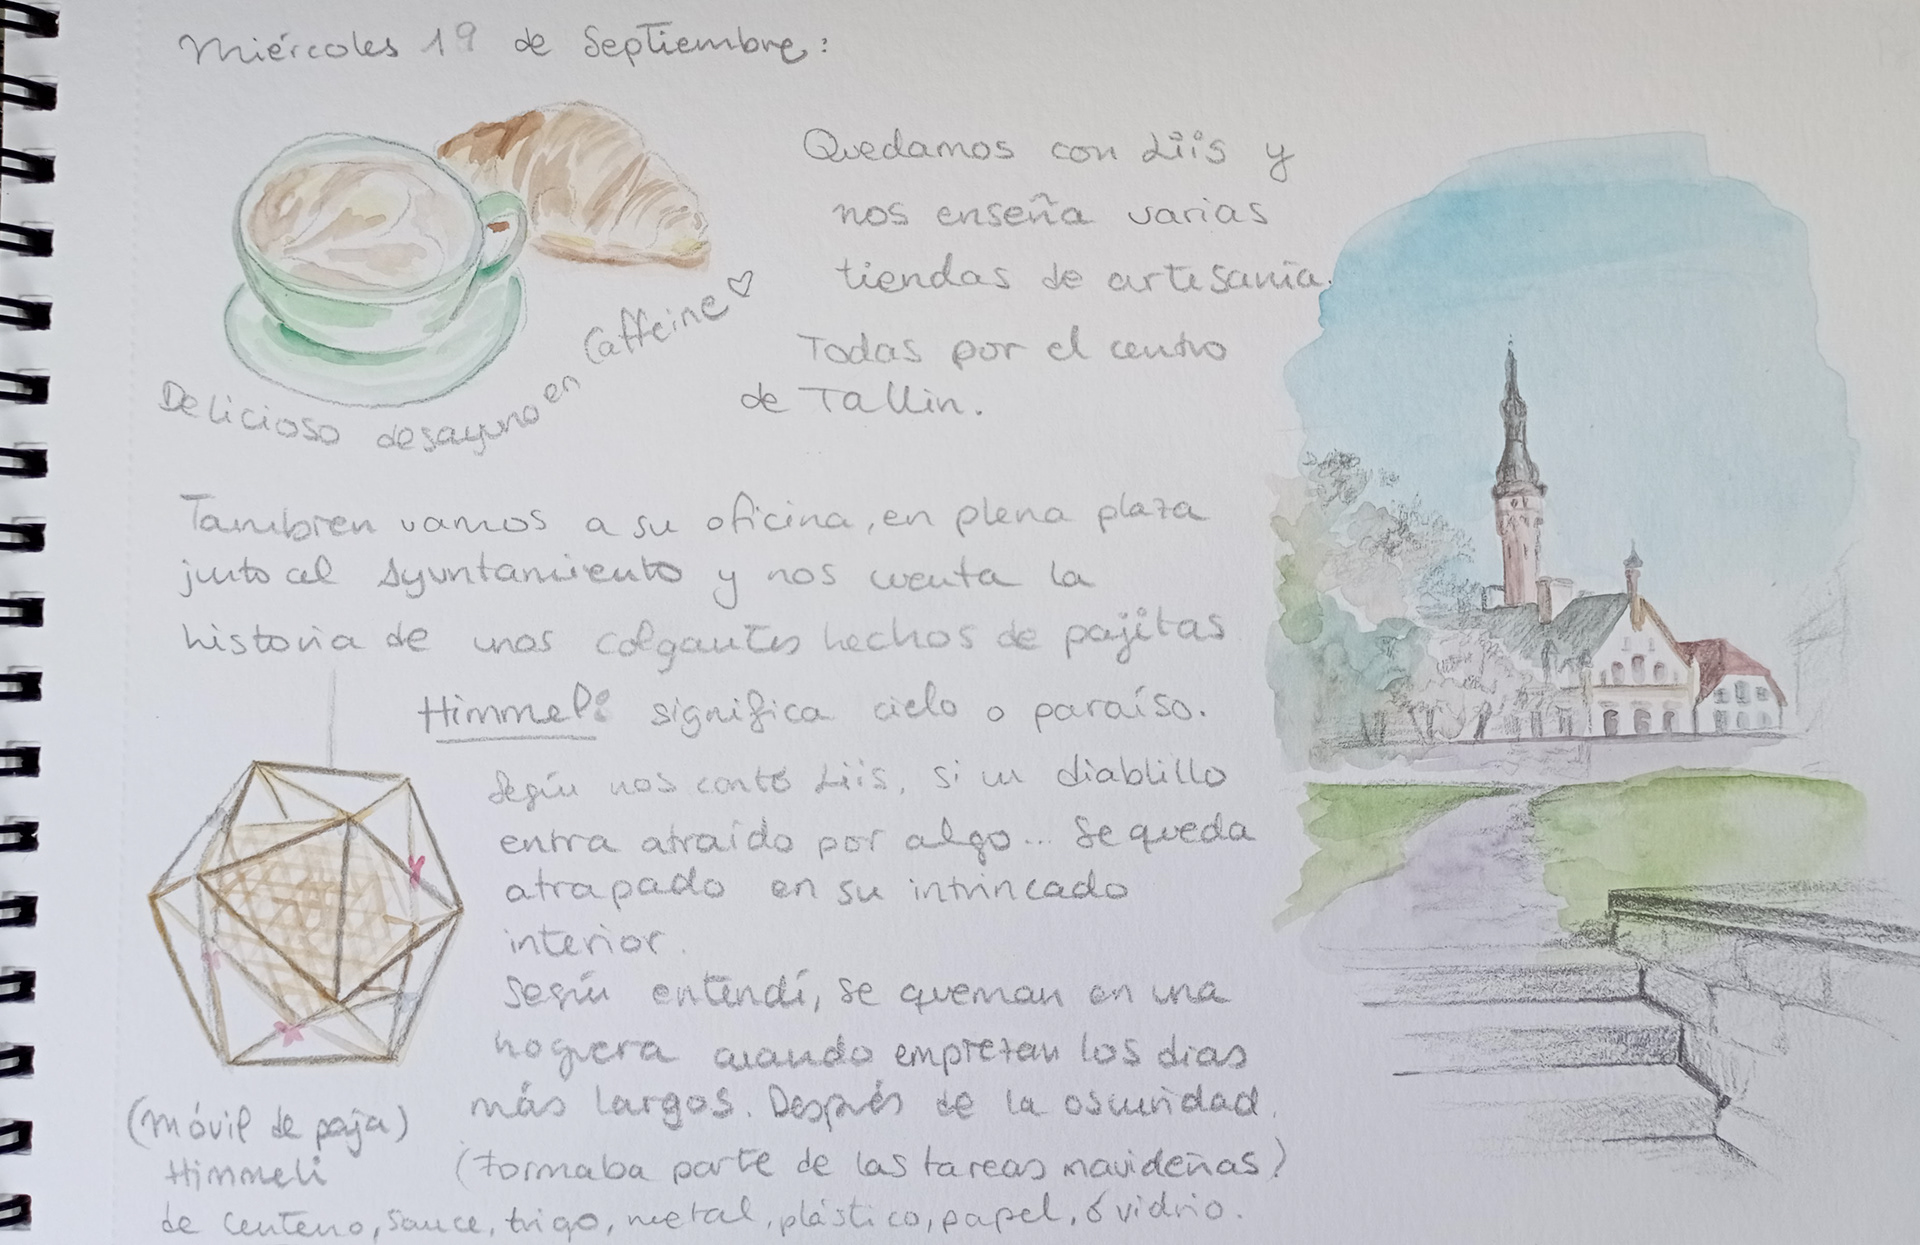 Miércoles 19 de Septiembre:
Delicioso desayuno en Caffeine
Quedamos con Liis y
nos enseña varias
tiendas de artesanía.
Todas por el centro
de Tallin.
Tambien vamos a su oficina, en plena plaza
junto al Ayuntamiento y nos cuenta la
historia de unos colgantes hechos de pajitas
Himmel: significa cielo o paraíso.
Según nos contó Liis, si un diablillo
entra atraído por algo... Se queda
atrapado en su intrincado
interior.
Según entendí, se queman en una
hoguera cuando empiezan los dias
más largos. Después de la oscuridad.
(Formaba parte de las tareas navideñas)
(móvil de paja)
Himmeli
de centeno, sauce, trigo, metal, plástico, papel, ó vidrio.